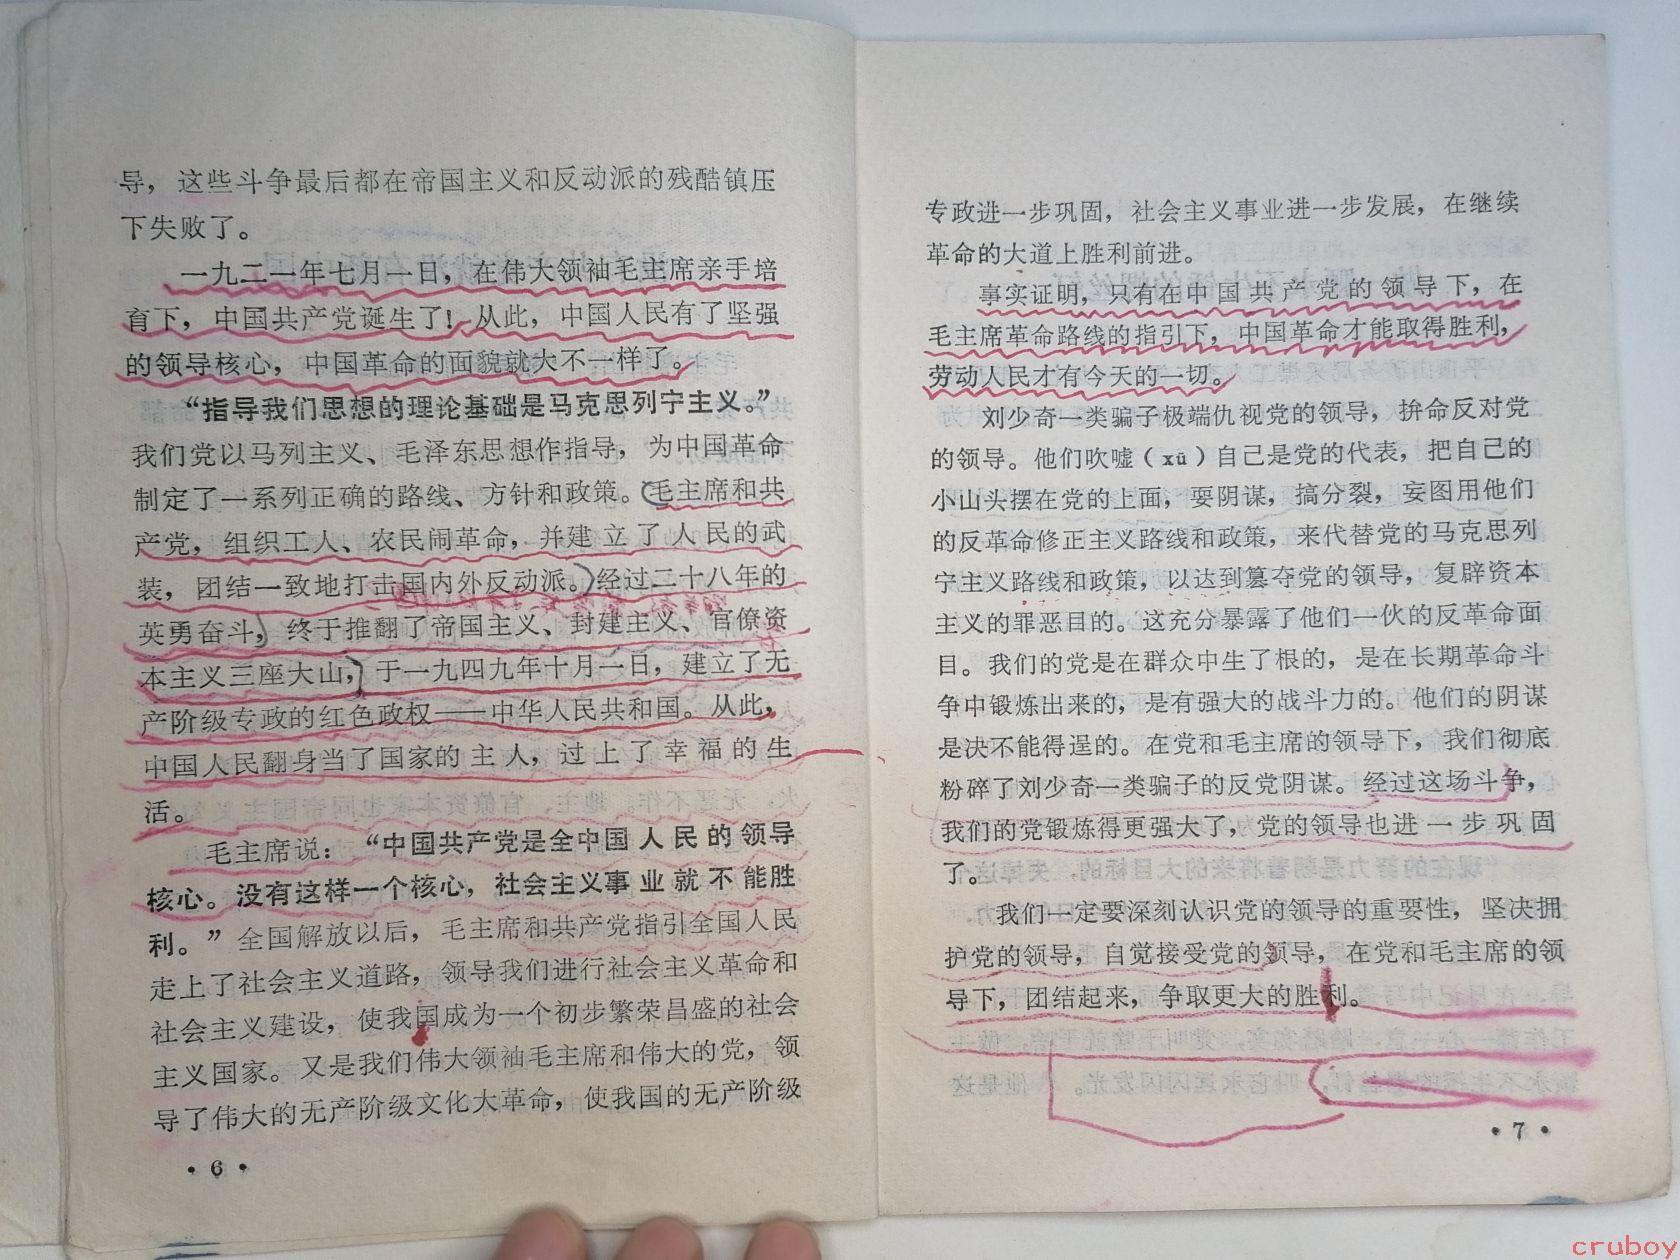 导，这些斗争最后都在帝国主义和反动派的残酷镇压
下失败了。
一九二一年七月一日，在伟大领袖毛主席亲手培
育下，中国共产党诞生了！从此，中国人民有了坚强
的领导核心，中国革命的面貌就大不一样了。
“指导我们思想的理论基础是马克思列宁主义。”
我们党以马列主义、毛泽东思想作指导，为中国革命
制定了一系列正确的路线、方针和政策。毛主席和共
产党，组织工人、农民闹革命，并建立了人民的武
装，团结一致地打击国内外反动派。经过二十八年的
英勇奋斗，终于推翻了帝国主义、封建主义、官僚资
本主义三座大山，于一九四九年十月一日，建立了无
产阶级专政的红色政权——中华人民共和国。从此，
中国人民翻身当了国家的主人，过上了幸福的生
活。
毛主席说：“中国共产党是全中国人民的领导
核心。没有这样一个核心，社会主义事业就不能胜
利。”全国解放以后，毛主席和共产党指引全国人民
走上了社会主义道路，领导我们进行社会主义革命和
社会主义建设，使我国成为一个初步繁荣昌盛的社会
主义国家。又是我们伟大领袖毛主席和伟大的党，领
导了伟大的无产阶级文化大革命，使我国的无产阶级
• 6 •
专政进一步巩固，社会主义事业进一步发展，在继续
革命的大道上胜利前进。
事实证明，只有在中国共产党的领导下，在
毛主席革命路线的指引下，中国革命才能取得胜利，
劳动人民才有今天的一切。
刘少奇一类骗子极端仇视党的领导，拚命反对党
的领导。他们吹嘘（xū）自己是党的代表，把自己的
小山头摆在党的上面，耍阴谋，搞分裂，妄图用他们
的反革命修正主义路线和政策，来代替党的马克思列
宁主义路线和政策，以达到篡夺党的领导，复辟资本
主义的罪恶目的。这充分暴露了他们一伙的反革命面
目。我们的党是在群众中生了根的，是在长期革命斗
争中锻炼出来的，是有强大的战斗力的。他们的阴谋
是决不能得逞的。在党和毛主席的领导下，我们彻底
粉碎了刘少奇一类骗子的反党阴谋。经过这场斗争，
我们的党锻炼得更强大了，党的领导也进一步巩固
了。
我们一定要深刻认识党的领导的重要性，坚决拥
护党的领导，自觉接受党的领导，在党和毛主席的领
导下，团结起来，争取更大的胜利。
• 7 •
cruboy